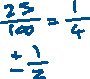 25/100 = 1/4
÷ 1/2